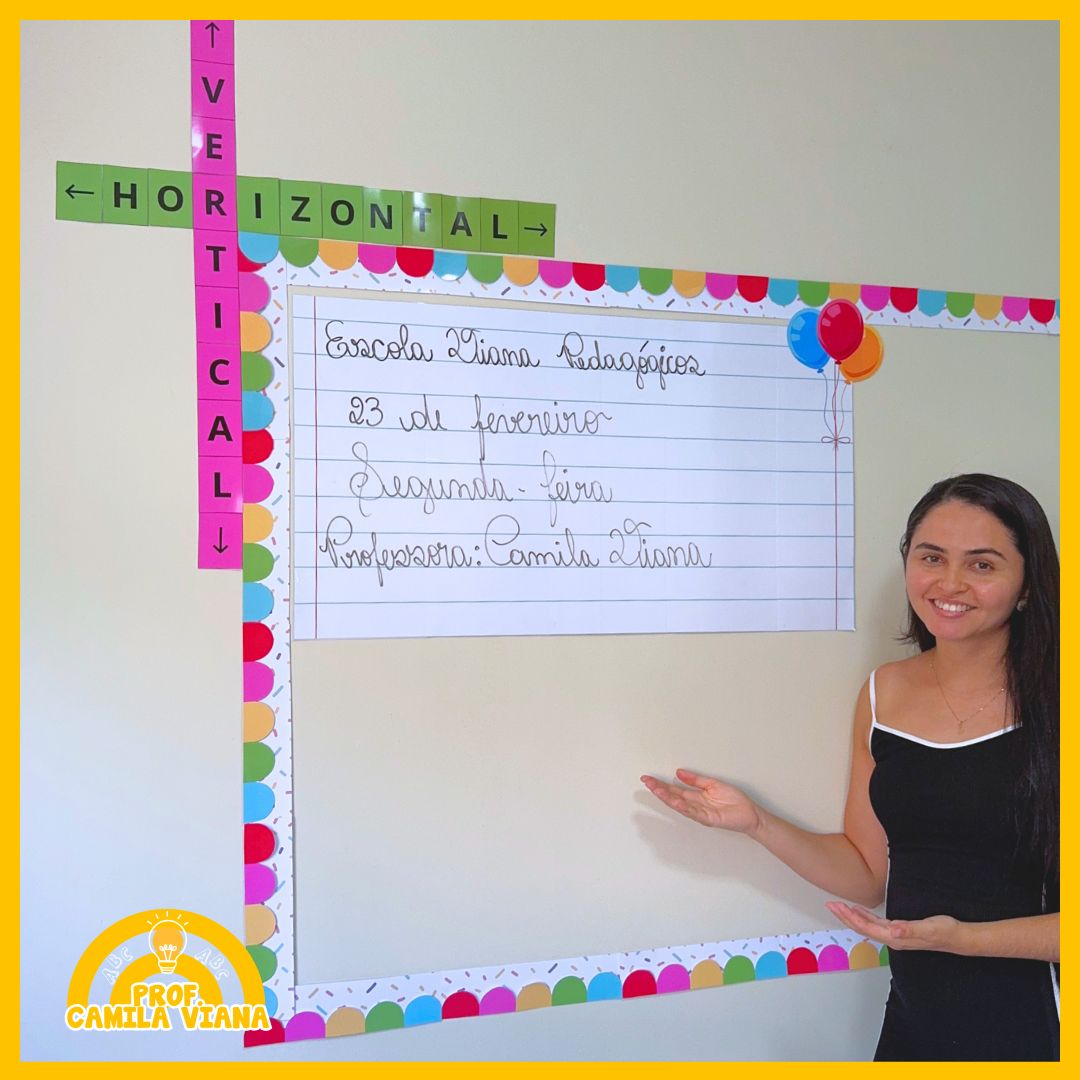 ↑ VERTICAL ↓
← HORIZONTAL →
Escola Viana Pedagógicos
23 de fevereiro
Segunda-feira
Professora: Camila Viana
ABC ABC
PROF.
CAMILA VIANA